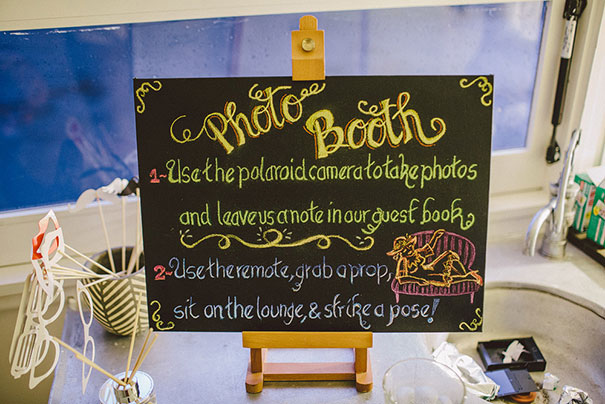 Photo Booth
1~Use the polaroid camera to take photos
and leave us a note in our guest book
2~Use the remote, grab a prop,
sit on the lounge, & strike a pose!